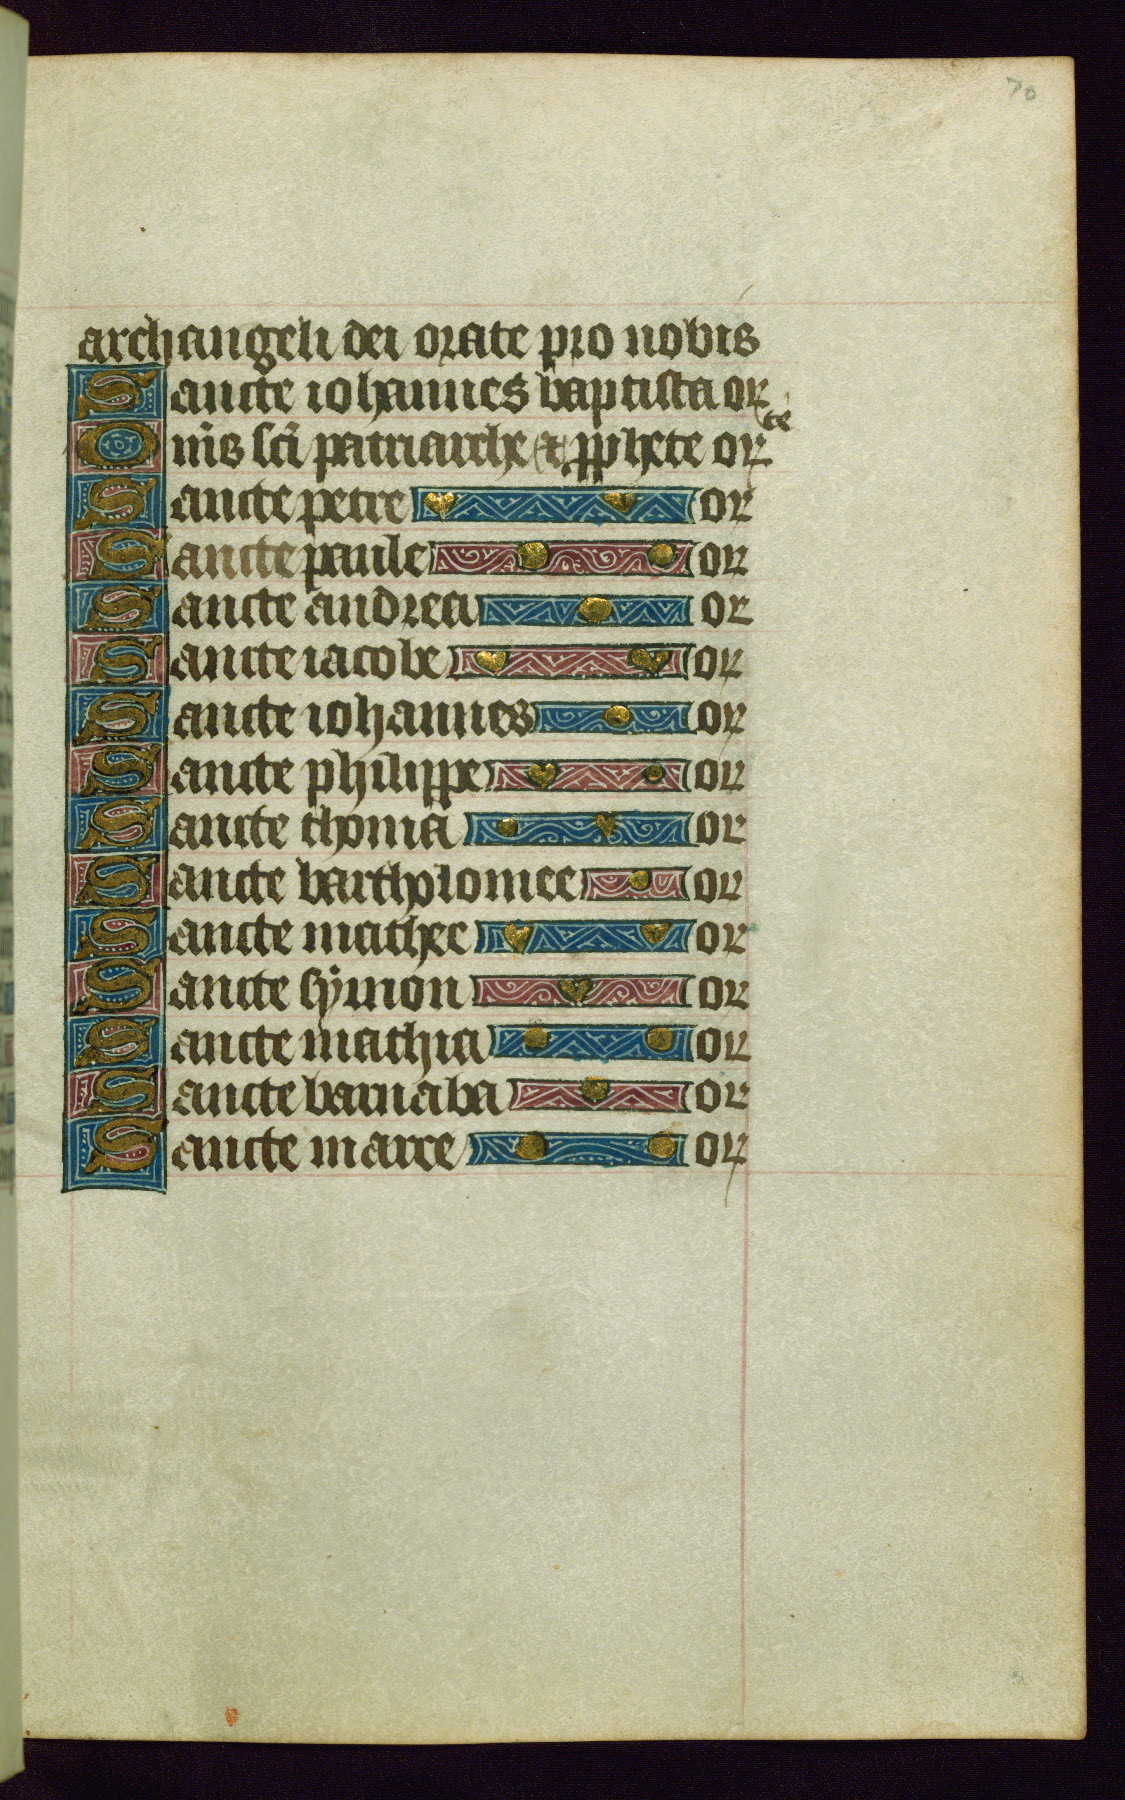 70
archangeli dei orate pro nobis
Sancte iohannes baptista or
te
Om̅s sc̅i patriarche & pphete or
Sancte petre or
Sancte paule or
Sancte andrea or
Sancte iacobe or
Sancte iohannes or
Sancte philippe or
Sancte thoma or
Sancte bartholomee or
Sancte mathee or
Sancte symon or
Sancte mathia or
Sancte barnaba or
Sancte marce or